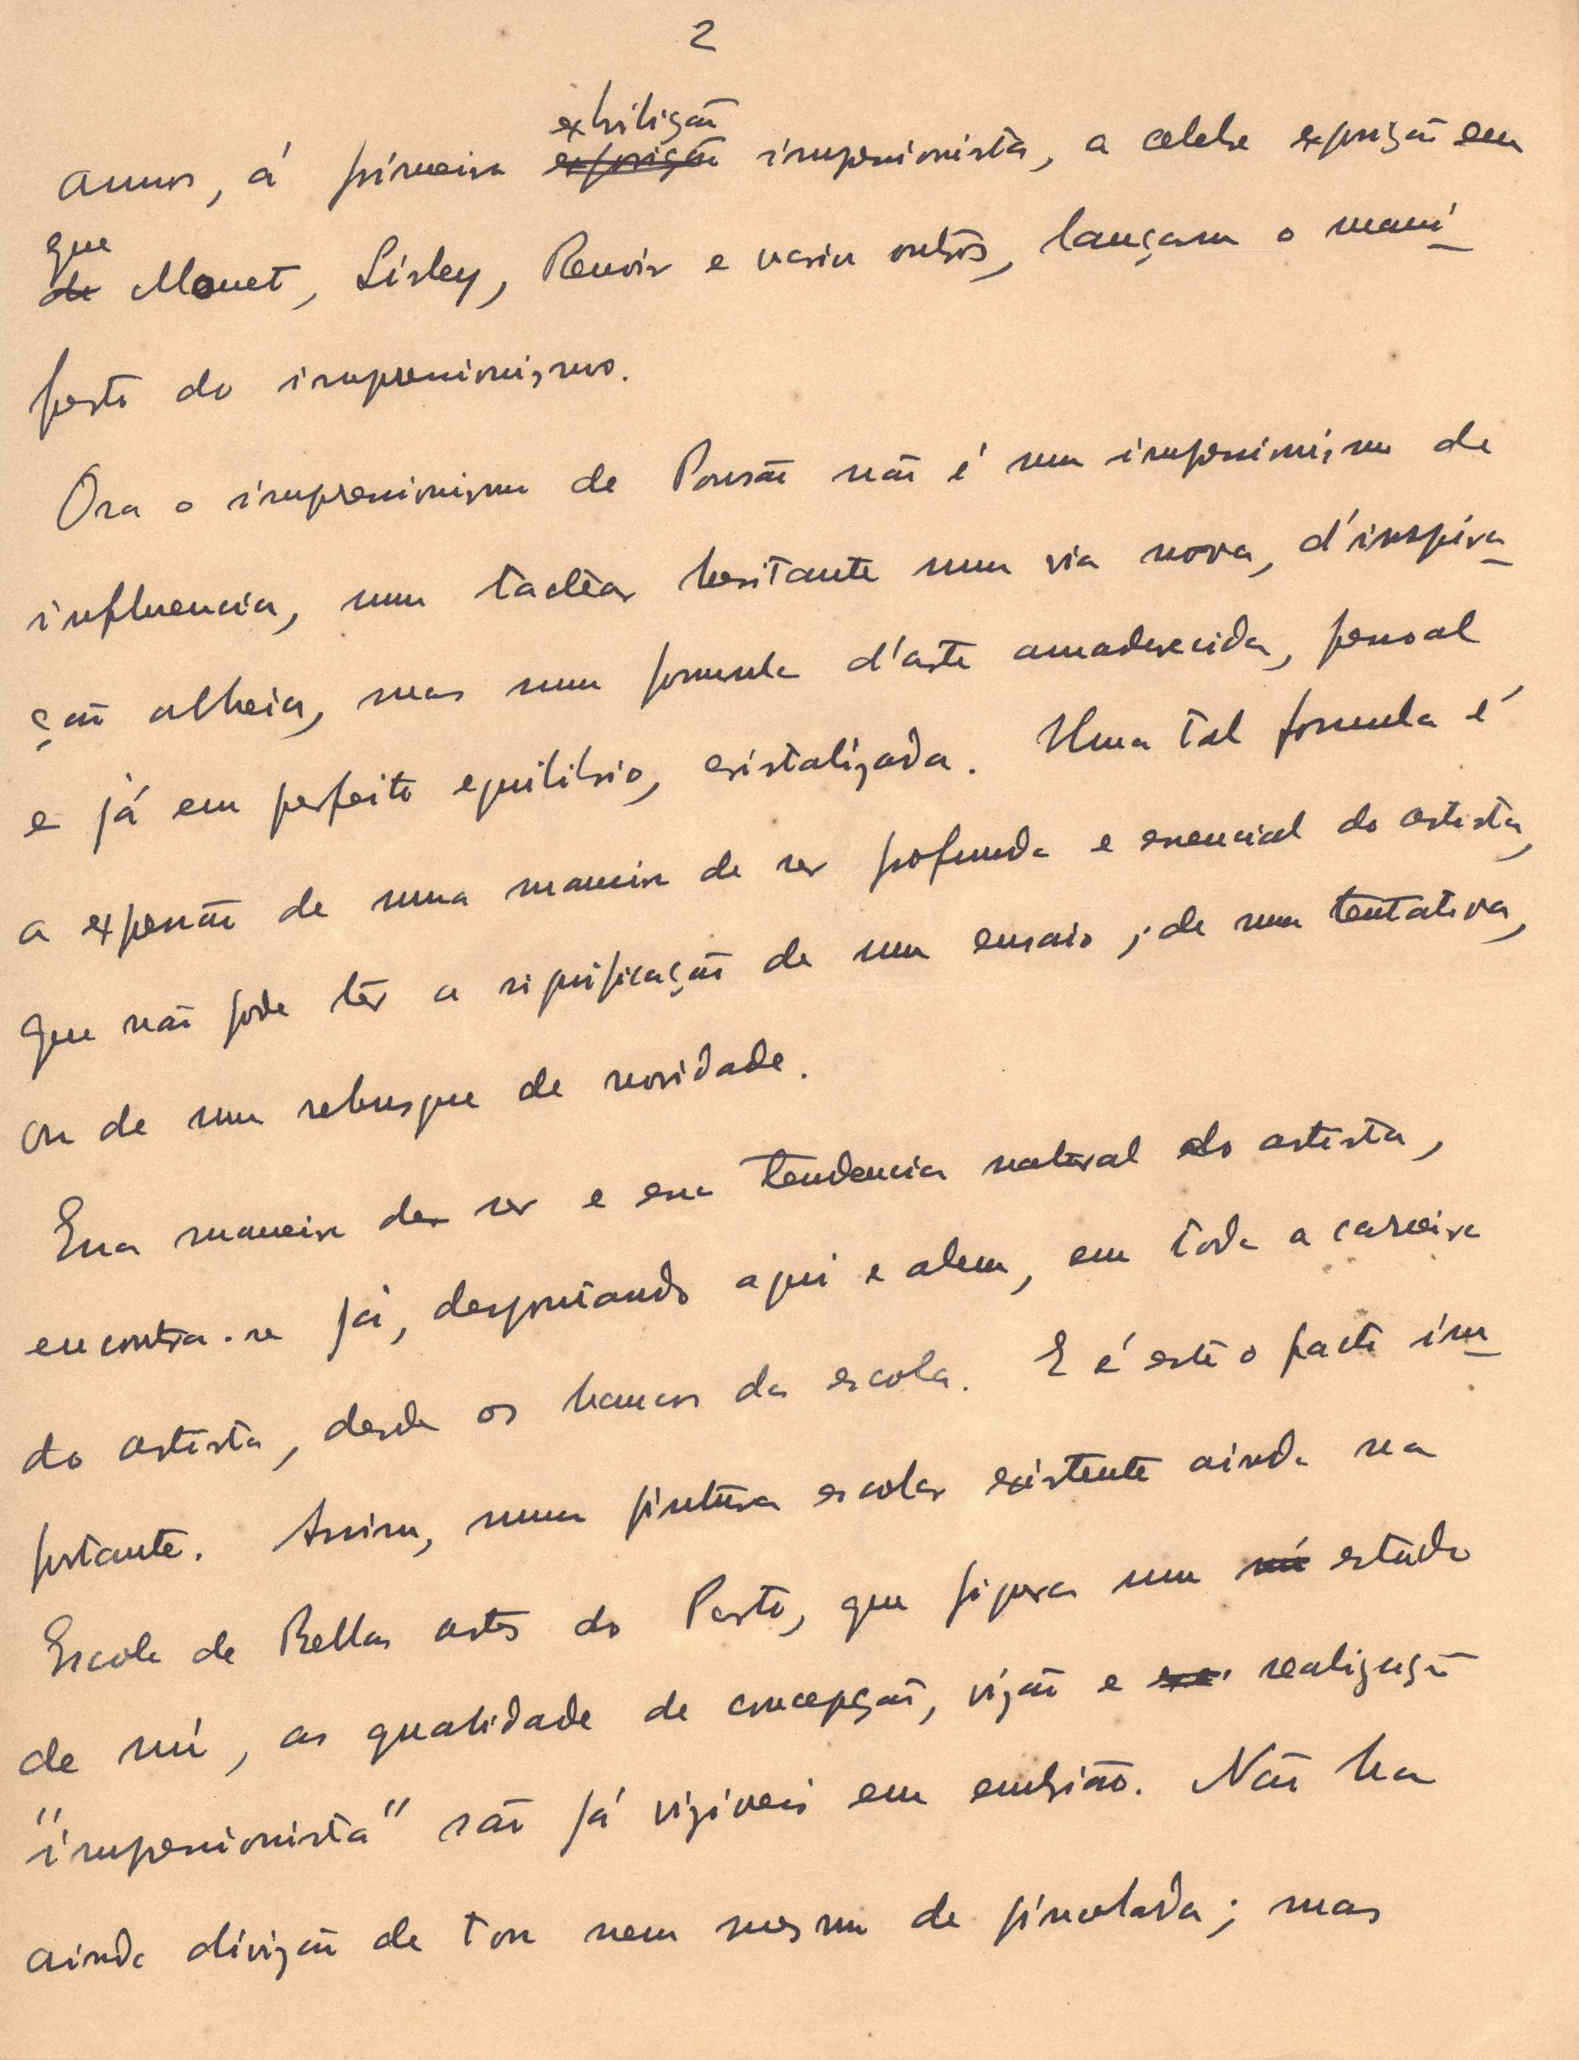 2
exhibição
annos, á primeira exposição impressionista, a celebre exposição em
que
de Monet, Sisley, Renoir e varios outros, lançam o mani-
festo do impressionismo.
Ora o impressionismo de Pousão não é um impressionismo de
influencia, um tactear hesitante numa via nova, d'inspira-
ção alheia, mas uma formula d'arte amadurecida, pessoal
e já em perfeito equilibrio, cristalizada. Uma tal formula é
a expressão de uma maneira de ser profunda e essencial do artista,
que não pode têr a significação de um ensaio, de uma tentativa,
ou de um rebusque de novidade.
Essa maneira de ser e essa tendencia natural do artista,
encontra-se já, despontando aqui e alem, em toda a carreira
do artista, desde os bancos da escola. E é este o facto im-
portante. Assim, numa pintura escolar existente ainda na
Escola de Bellas artes do Porto, que figura um nú estudo
de nú, as qualidade de concepção, vizão e realização
"impressionista" são já viziveis em embrião. Não ha
ainda divizão de tom nem mesmo de pincelada; mas